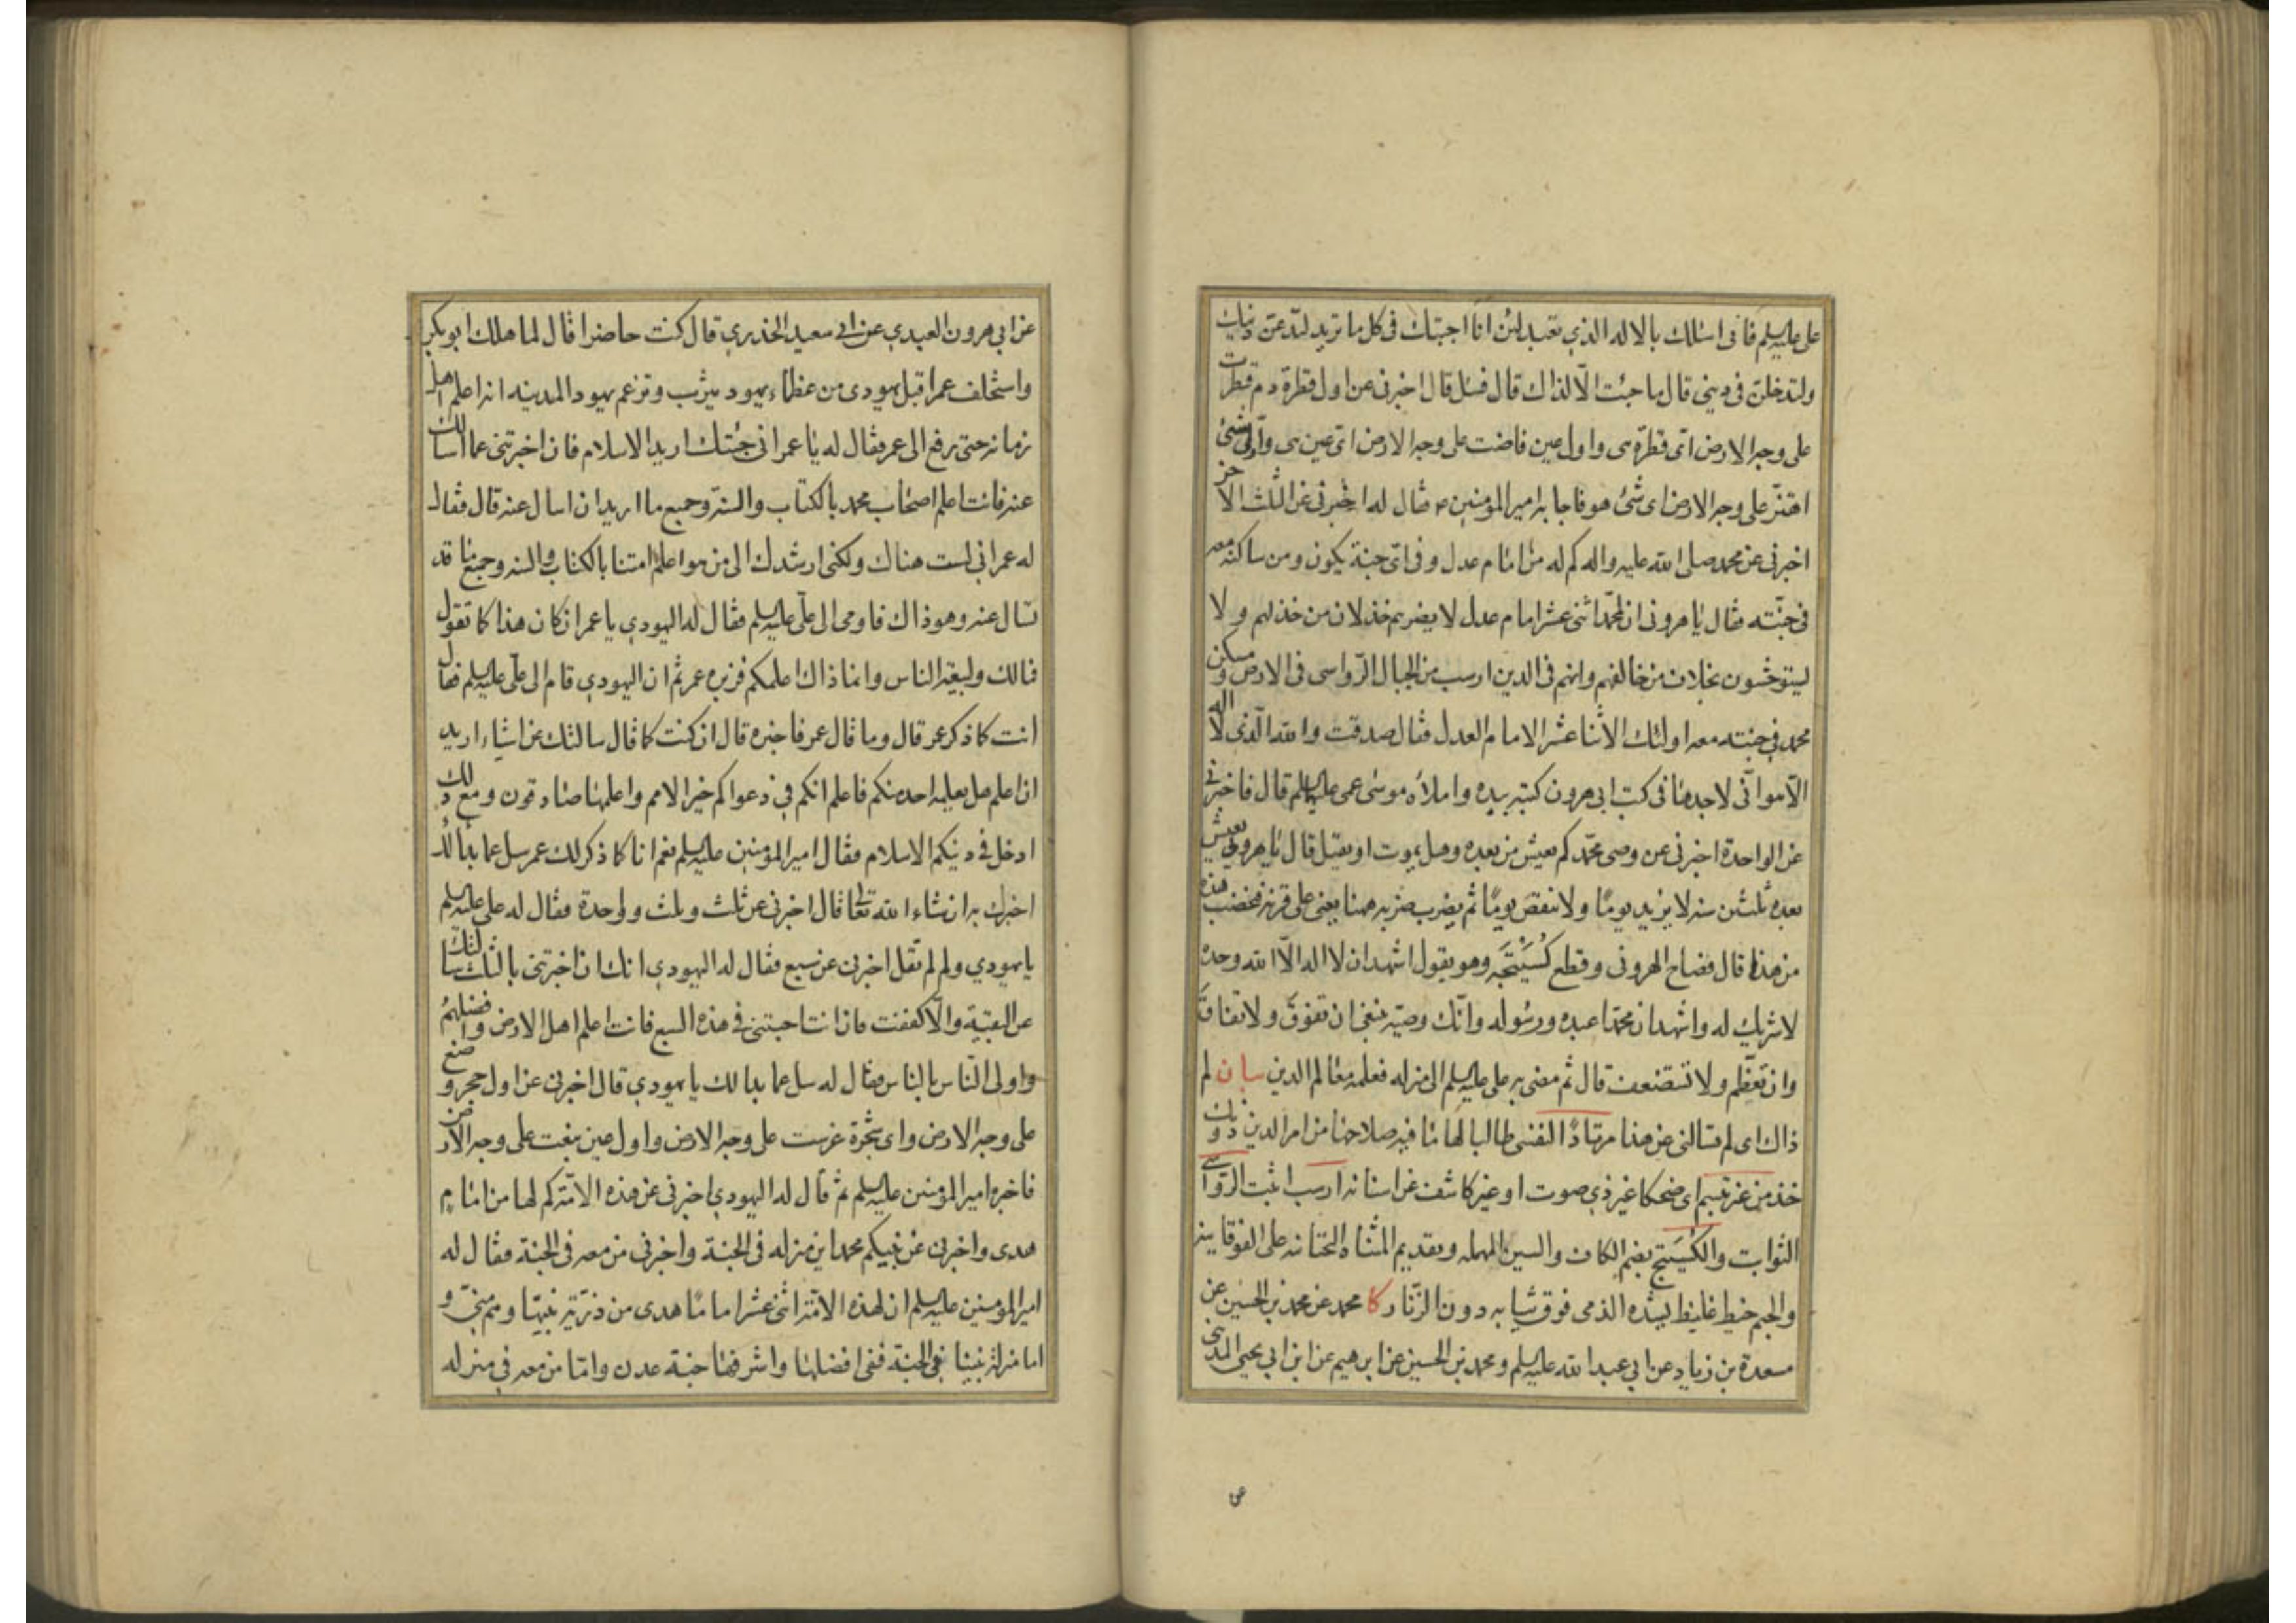 على عليه السلم فانى اسئلك بالاله الذي تعبد لئن انا اجبتك فى كل ما تريد لتدعن دينك
ولتدخلن فى دينى قال ما جئت الّا لذاك قال فسل قال اخبرنى عن اول قطرة دم قطرت
على وجه الارض اى قطرة هى واول عين فاضت على وجه الارض اى عين هى واول شئ
اهتزّ على وجه الارض اى شئ هو فاجابه امير المؤمنين ع فقال له اخبرنى عن الثلث الاخر
اخبرنى عن محمد صلى الله عليه واله كم له من امام عدل وفى اى جنة يكون ومن ساكنه معه
فى جنّته فقال يا هرونى ان لمحمّد اثنى عشر امام عدل لا يضرهم خذلان من خذلهم ولا
ليتوحشون بخلاف من خالفهم وانهم فى الدين ارسب من الجبال الرّواسى فى الارض ومسكن
محمد فى جنته معه اولئك الاثنا عشر الامام العدل فقال صدقت والله الّذى لا اله
الّا هو انّى لاجدها فى كتب ابى هرون كتبه بيده واملاه موسى عمى عليه السلم قال فاخبرنى
عن الواحدة اخبرنى عن وصى محمّد كم يعيش من بعده وهل يموت او يقتل قال يا هرونى يعيش
بعده ثلثين سنه لا يزيد يومًا ولا ينقص يومًا ثم يضرب ضربه ههنا يعنى على قرنه فتخضب هذه
من هذا قال فصاح الهرونى وقطع كُسْتَيجَه وهو يقول اشهد ان لا اله الّا الله وحده
لا شريك له واشهد ان محمّدا عبده ورسوله وانّك وصيّه ينبغى ان تفوق ولا تفاق
وان تعظّم ولا تستضعف قال ثم مضى به على عليه السلم الى منزله فعلمه معالم الدين بيان لم
ذاك اى لم تسالنى عن هذا مرتادًا لنفسى طالبا لها ما فيه صلاحها من امر الدين دونك
خذ من غير تبسم اى ضحكا غير ذى صوت او غير كاشف عن اسنانه ارسب اثبت الرّواسى
الثوابت والكُسَيتج بضم الكاف والسين المهمله وبقديم المثناه التحتانيه على الفوقانيه
والجيم خيط غليظ يشده الذمى فوق ثيابه دون الزنّار كا محمد عن محمد بن الحسين عن
مسعدة بن زياد عن ابي عبد الله عليه السلم ومحمد بن الحسين عن ابرهيم عن ابن ابي يحيى المدنى
عن
عن ابي هرون العبدي عن ابي سعيد الخدري قال كنت حاضرا قال لما هلك ابو بكر
واستخلف عمر اقبل يهودى من عظماء يهود يثرب وتزعم يهود المدينه انه اعلم اهل
زمانه حتى رفع الى عمر فقال له يا عمر انى جئتك اريد الاسلام فان اخبرتنى عما اسالك
عنه فانت اعلم اصحاب محمد بالكتاب والسنّة وجميع ما اريد ان اسال عنه قال فقال
له عمر انى لست هناك ولكنى ارشدك الى من هو اعلم امتنا بالكتاب والسنه وجميع ما قد
تسال عنه وهو ذاك فاومى الى علّى عليه السلم فقال له اليهودي يا عمر ان كان هذا كما تقول
فما لك ولبيعة الناس وانما ذاك اعلمكم فزبره عمر ثم ان اليهودي قام الى علّى عليه السلم فقال
انت كما ذكر عمر قال وما قال عمر فاخبره قال ان كنت كما قال سالتك عن اشياء اريد
ان اعلم هل يعلمه احد منكم فاعلم انكم فى دعواكم خير الامم واعلمها صادقون ومع ذلك
ادخل فى دينكم الاسلام فقال امير المؤمنين عليه السلم نعم انا كما ذكر لك عمر سل عما بدا لك
اخبرك به ان شاء الله تعا قال اخبرنى عن ثلث وثلث وواحدة فقال له على عليه السلم
يا يهودي ولم لم تقل اخبرنى عن سبع فقال له اليهودي انك ان اخبرتنى بالثلث سالتك
عن البقيّة والّا كففت فان انت اجبتنى فى هذه السبع فانت اعلم اهل الارض وافضلهم
واولى النّاس بالناس فقال له سل عما بدا لك يا يهودي قال اخبرنى عن اول حجر وضع
على وجه الارض واى شجرة غرست على وجه الارض واول عين نبعت على وجه الارض
فاخبره امير المؤمنين عليه السلم ثم قال له اليهودي اخبرنى عن هذه الامّة كم لها من امام
هدى واخبرنى عن نبيكم محمد اين منزله فى الجنة واخبرنى من معه فى الجنة فقال له
امير المؤمنين عليه السلم ان لهذه الامّة اثنى عشر امامًا هدى من ذرّية نبيّها وهم منّى و
اما منزلة نبينا فى الجنة ففى افضلها واشرفها جنة عدن وامّا من معه فى منزله